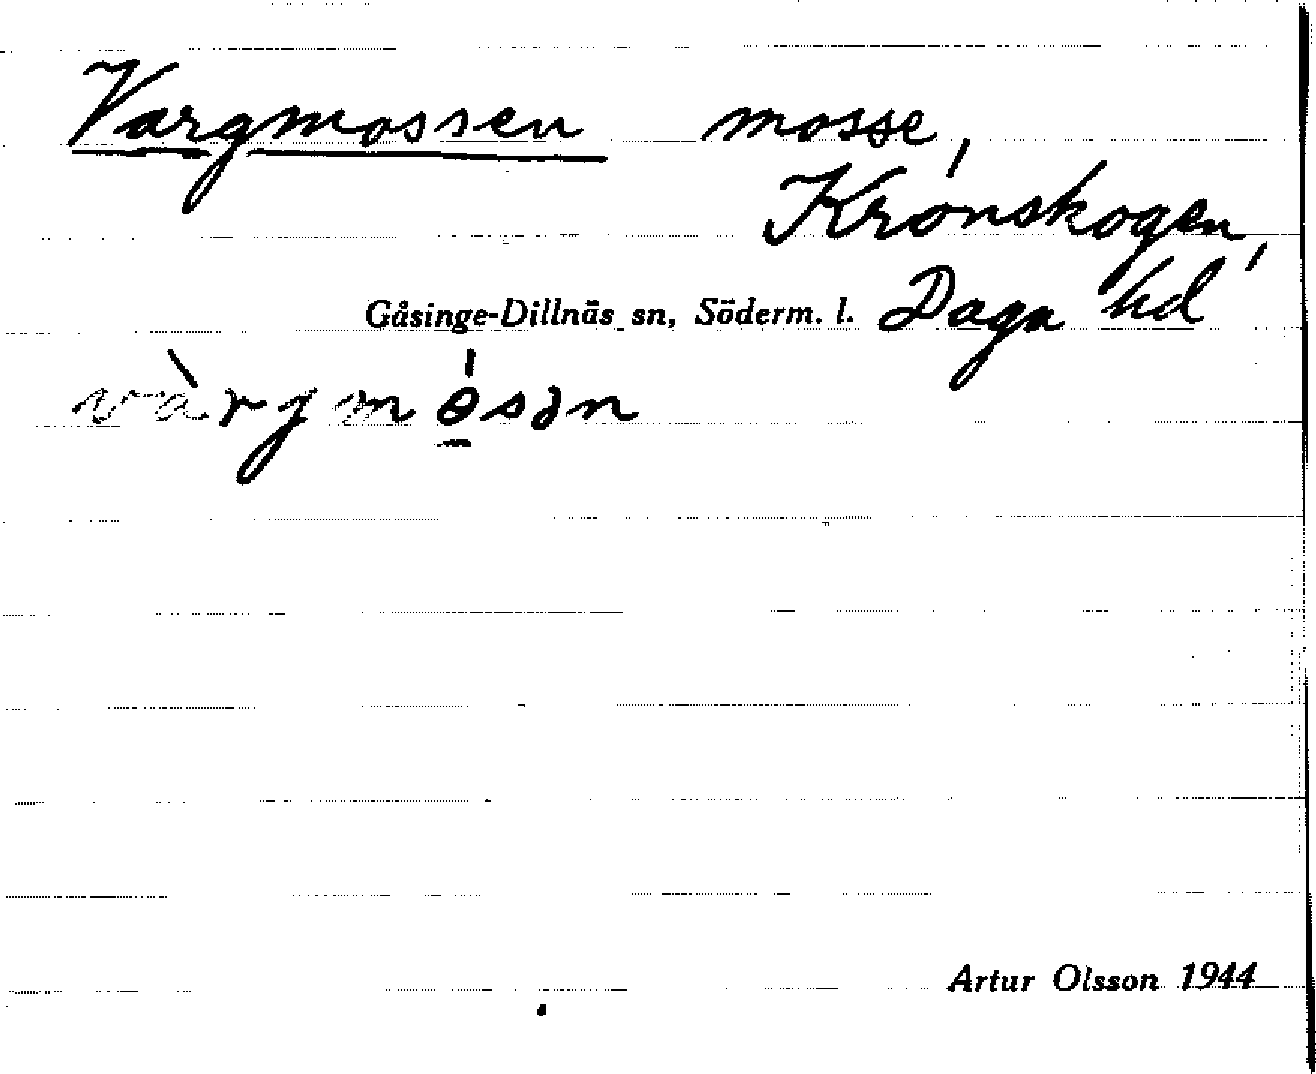 Vargmossen mosse,
Kronskogen,
Gåsinge-Dillnäs sn, Söderm. l. Daga hd
vàrgmósən
Artur Olsson 1944